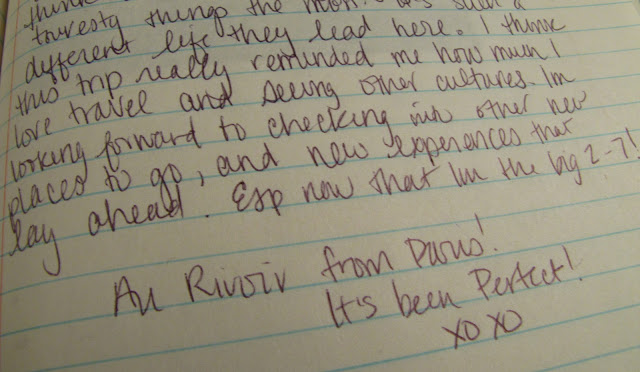 think
touristy things the
different life they lead here. I think
this trip really reminded me how much I
love travel and seeing other cultures. Im
looking forward to checking into other new
places to go, and new experiences that
lay ahead. Esp now that Im the big 2-7!
Au Rivoir from Paris!
It's been Perfect!
xo xo